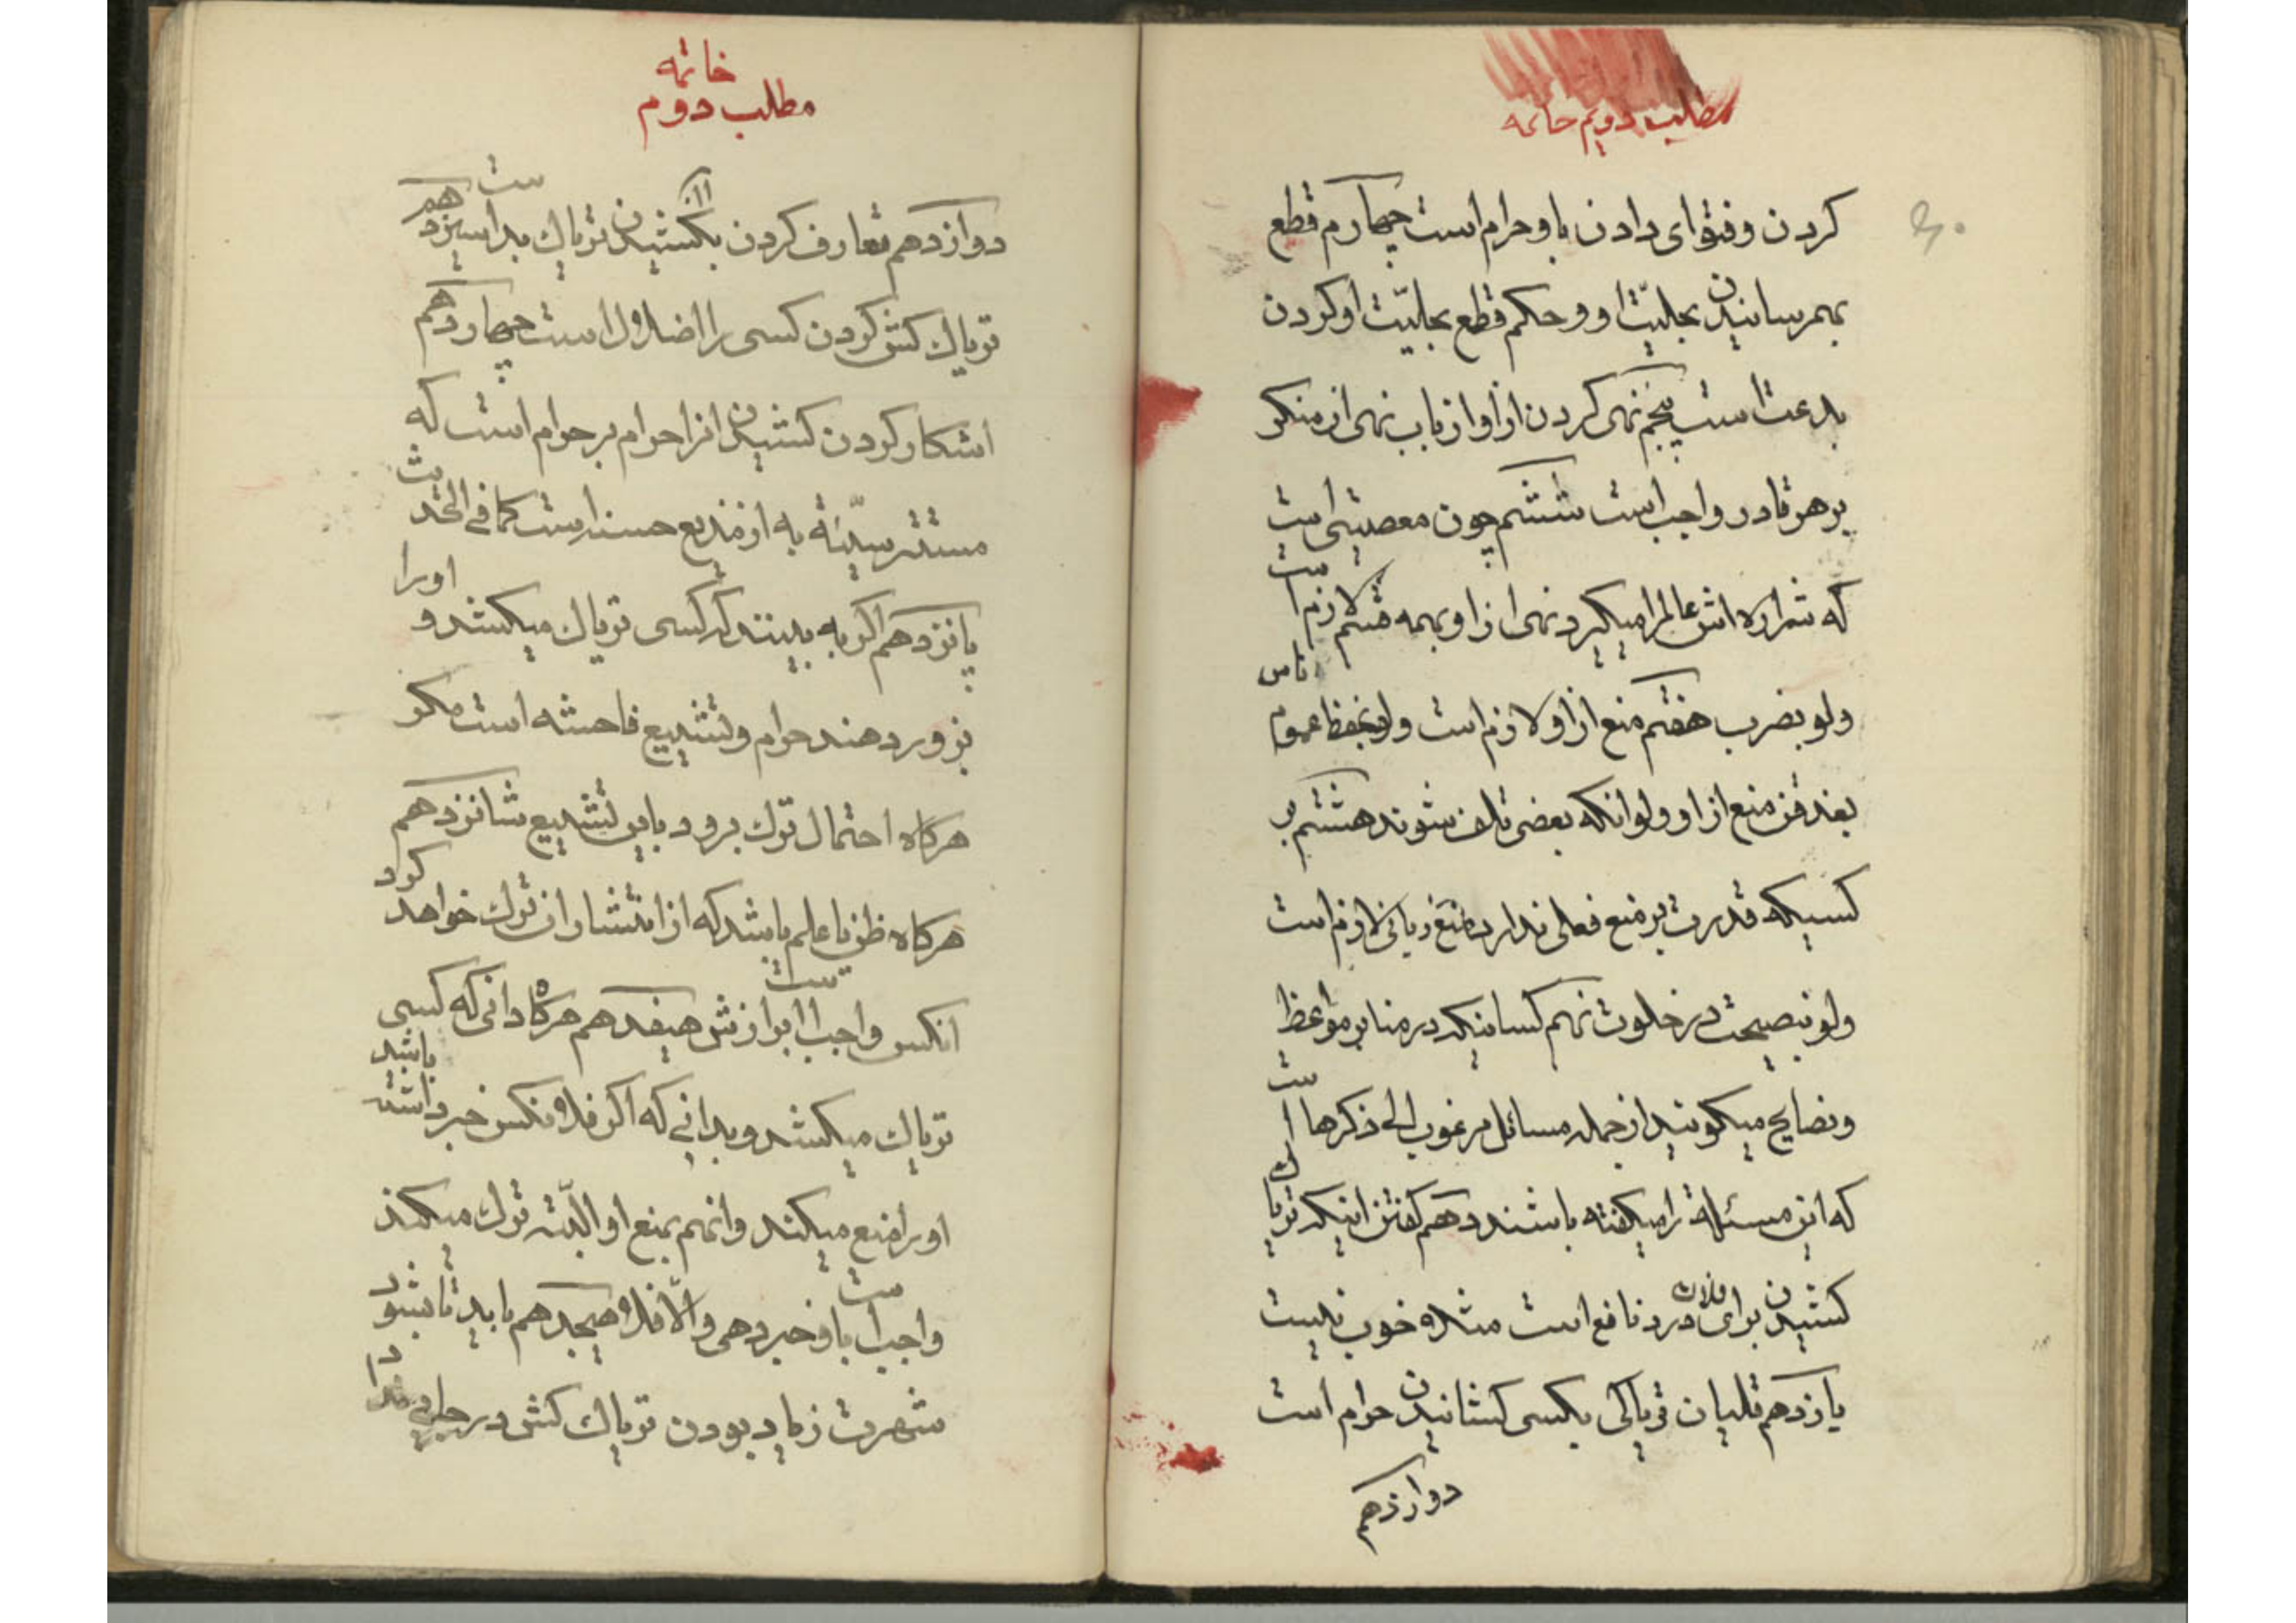 مطلب دویم خاتمه
کردن و فتوای دادن باو حرام است چهارم قطع
بهمرسانیدن بحلیّت او و حکم قطع بحلیّت او کردن
بدعت است پنجم نهی کردن از او از باب نهی از منکر
بر هر قادر واجب است ششم چون معصیتی است
که شراره اش عالم را میکیرد نهی از او بهمه قسم لازم است
ولو بضرب هفتم منع از او لازم است ولو بحفظ عموم ناس
بغدقن منع از او ولو انکه بعضی تلف شوند هشتم بر
کسیکه قدرت بر منع فعلی ندارد منع زبانی لازم است
ولو بنصیحت در خلوت نهم کسانیکه در منابر مواعظ
و نصایح میکویند از جمله مسائل مرغوب الی ذکرها است
که این مسئله را میکفته باشند دهم کفتن اینکه تریاک
کشیدن برای فلان درد نافع است مثلا خوب نیست
یازدهم قلیان تریاکی بکسی کشانیدن حرام است
دوازدهم
خاتمه
مطلب دوم
دوازدهم تعارف کردن بکشیدن تریاک بد است سیزدهم
تریاک کش کردن کسی را اضلال است چهاردهم
اشکار کردن کشیدن انرا حرام بر حرام است که
مستتر سیّئه به از مذیع حسنه است کما فی الحدیث
پانزدهم اکر به بینند که کسی تریاک میکشد و اورا
بروز دهند حرام و تشییع فاحشه است مکر
هرکاه احتمال ترک برود باین تشییع شانزدهم
هرکاه ظن یا علم باشد که از انتشار ان ترک خواهد کرد
انکس واجب است ابرازش هیفدهم هرکاه دانی که کسی
تریاک میکشد و بدانی که اکر فلانکس خبر داشته باشد
او را منع میکند و انهم بمنع او البتّه ترک میکند
واجب است باو خبر دهی والّا فلا هیجدهم باید تا بشود
شهرت زیاد بودن تریاک کش در